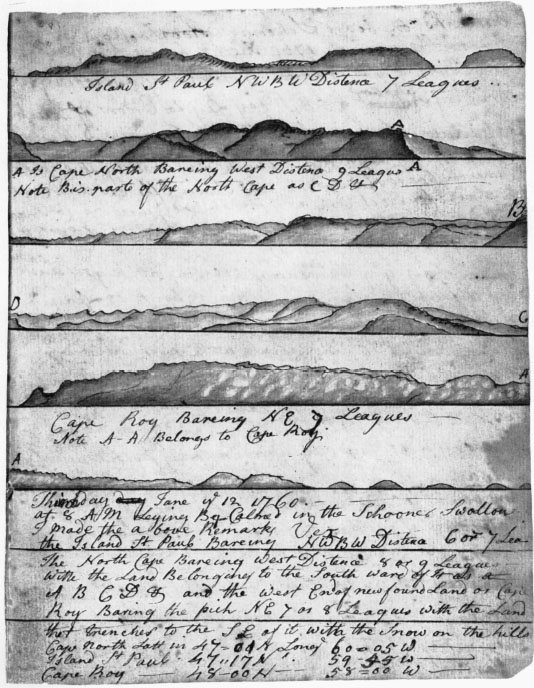 Island St Paul NWBW Distence 7 Leagues
A
A Is Cape North Bareing West Distence 9 Leagus A
Note B is part of the North Cape as C D &
B
D C
A
Cape Roy Bareing NE 9 Leagues
Note A-A Belongs to Cape Roy
A
Thirsday June ye 12 1760
at 8 AM Leying By Calmd in the Schooner Swallow
I made the a bove Remarks Viz
the Island St Pauls Bareing NWBW Distence 6 or 7 Lea
The North Cape Bareing West Distence 8 or 9 Leagues
with the Land Belonging to the South ward of it as a
A B C D & and the West End of newfound Land or Cape
Roy Baring the NE 7 or 8 Leagues with the Land
that Trenches to the SE of it with the Snow on the hills
Cape North Latt in 47-04 N Long 60=05 W
Island St Paul 47-17 N 59 W
Cape Roy 48-00 N 58=00 W